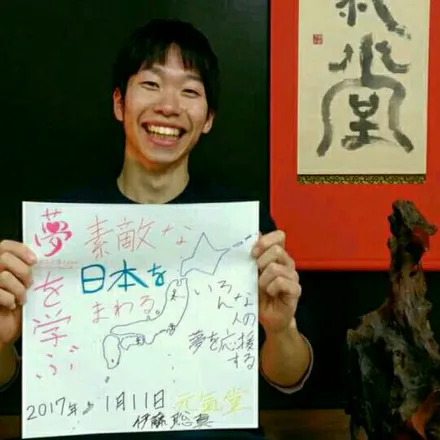 氣堂
夢を学ぶ
素敵な
日本を
まわる
いろんな
人の
夢を応援
する
2017年 1月11日 元氣堂
伊藤 聡